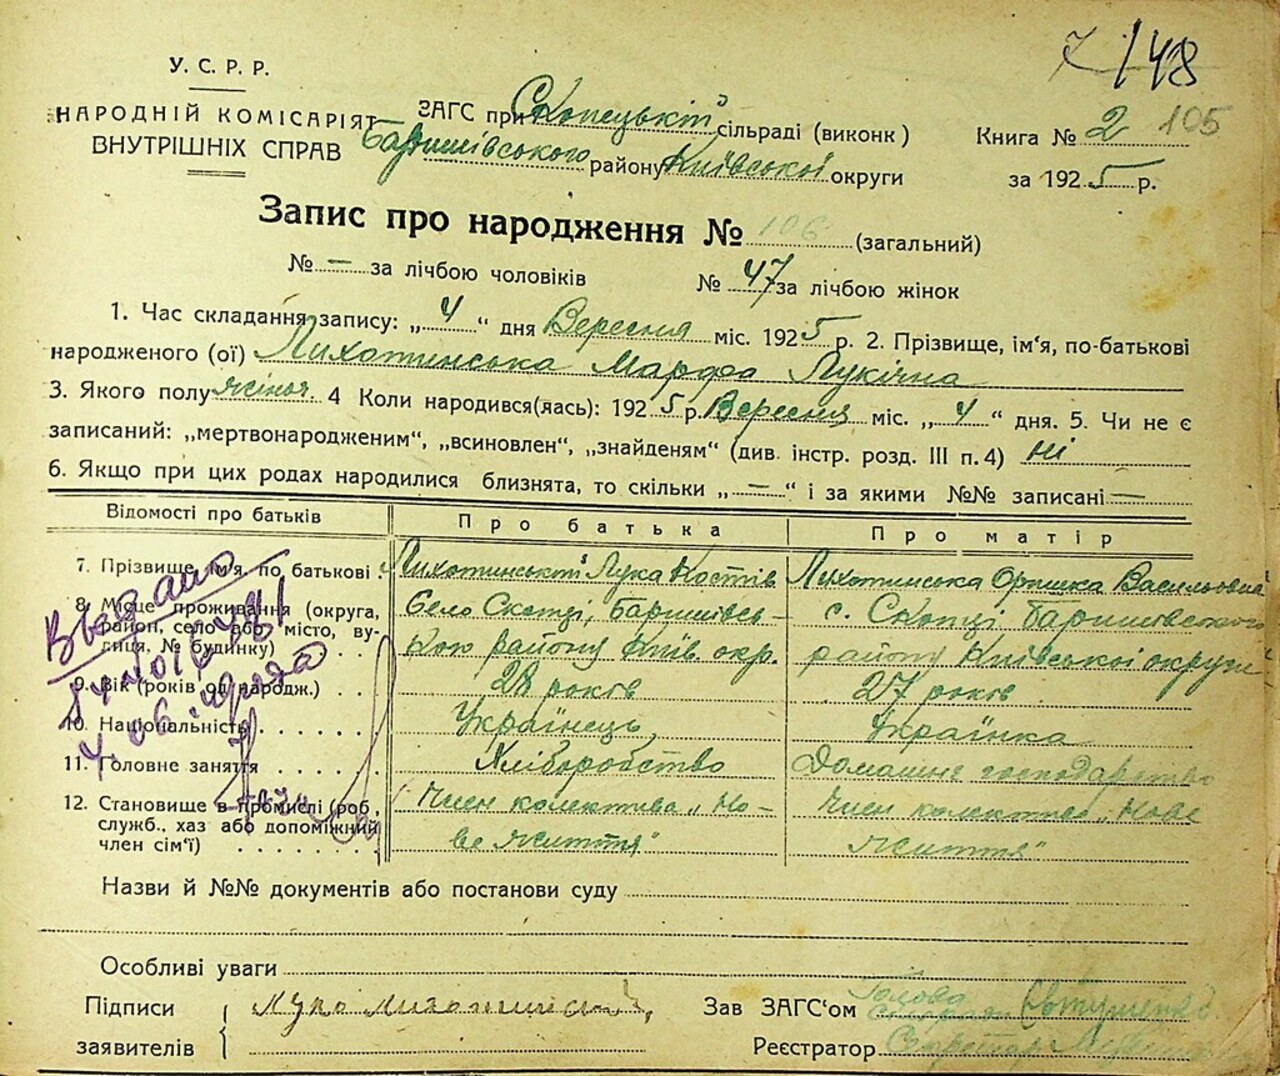 7/148
У. С. Р. Р.
НАРОДНІЙ КОМІСАРІЯТ
ВНУТРІШНІХ СПРАВ
ЗАГС при Скопецькій сільраді (виконк)
Баришівського району Київської округи
Книга № 2 105
за 1925 р.
Запис про народження № 106 (загальний)
№ — за лічбою чоловіків № 47 за лічбою жінок
1. Час складання запису: „4“ дня Вересня міс. 1925 р. 2. Прізвище, ім'я, по-батькові
народженого (ої) Лихотинська Марфа Лукічна
3. Якого полу жіноч. 4 Коли народився(лась): 1925 р. Вересня міс. „4“ дня. 5. Чи не є
записаний: „мертвонародженим“, „всиновлен“, „знайденям“ (див. інстр. розд. III п. 4) Ні
6. Якщо при цих родах народилися близнята, то скільки „—“ і за якими №№ записані —
Відомості про батьків Про батька Про матір
7. Прізвище, ім'я, по батькові . Лихотинський Лука Костів Лихотинська Оришка Васильовна
8. Місце проживання (округа, район, село або місто, вулиця, № будинку) . . Село Скопці, Баришівсь- с. Скопці Баришівського
кого району Київ. окр. району Київської округи
9. Вік (років од народж.) . . 28 років 27 років
10. Національність . . . . . . Українець Українка
11. Головне заняття . . . . . Хліборобство Домашнє господарство
12. Становище в промислі (роб., Член колектива „Но- Член колектива „Нове
служб., хаз або допоміжний ве життя“ життя“
член сім'ї) . . . . . . .
Видано
Назви й №№ документів або постанови суду
Особливі уваги
Підписи Лука Лихотинський Зав ЗАГС'ом Голова
заявителів Реєстратор Секретар